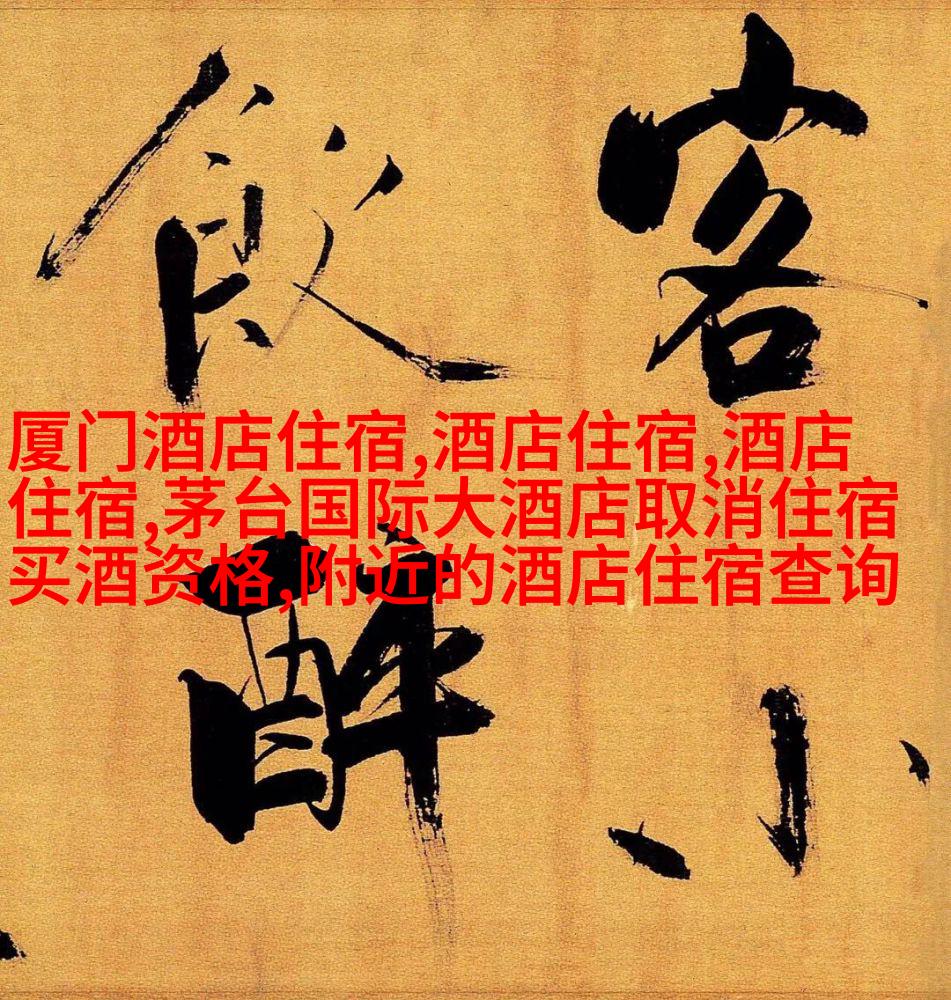 客小
飲醉
厦门酒店住宿,酒店住宿,酒店
住宿,茅台国际大酒店取消住宿
买酒资格,附近的酒店住宿查询